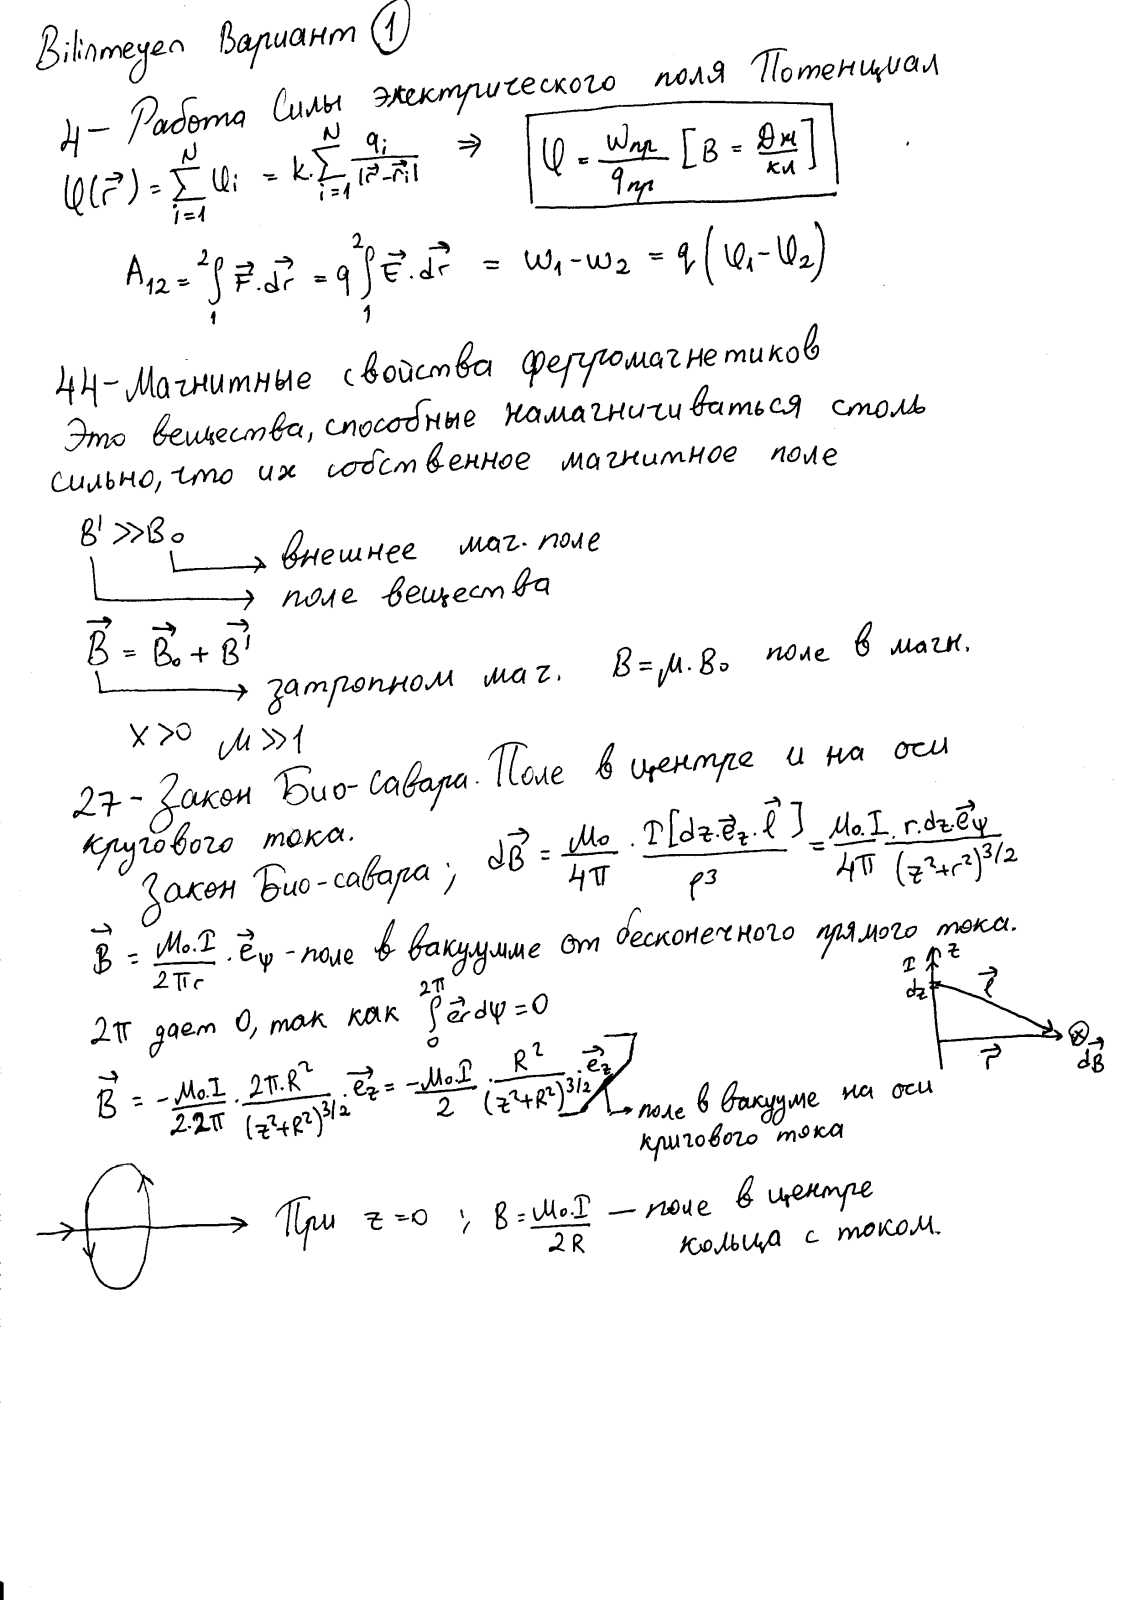 Bilinmeyen Вариант ①
4- Работа Силы электрического поля Потенциал
φ(r⃗) = Σ_{i=1}^{N} φi = k·Σ_{i=1}^{N} qi/|r⃗-r⃗i| ⇒ φ = Wпр/qпр [В = Дж/кл]
A12 = ∫₁² F⃗·dr⃗ = q∫₁² E⃗·dr⃗ = W1-W2 = q(φ1-φ2)
44-Магнитные свойства ферромагнетиков
Это вещества, способные намагничиваться столь
сильно, что их собственное магнитное поле
B' >> B0
внешнее маг. поле
поле вещества
B⃗ = B⃗0 + B⃗'
затропном маг. B = μ·B0 поле в магн.
X>0 μ>>1
27- Закон Био-савара. Поле в центре и на оси
кругового тока.
Закон Био-савара; dB⃗ = μ0/4π · I[dz·e⃗z·l⃗]/ρ³ = μ0·I/4π · r·dz·e⃗ψ/(z²+r²)^3/2
B⃗ = μ0·I/2πr · e⃗ψ - поле в вакуумме от бесконечного прямого тока.
I z
dz l⃗
r⃗ dB⃗
2π дает 0, так как ∫₀^2π e⃗r dψ = 0
B⃗ = -μ0·I/2·2π · 2π·R²/(z²+R²)^3/2 · e⃗z = -μ0·I/2 · R²/(z²+R²)^3/2 · e⃗z
поле в вакууме на оси
кригового тока
При z=0 ; B = μ0·I/2R — поле в центре
кольца с током.